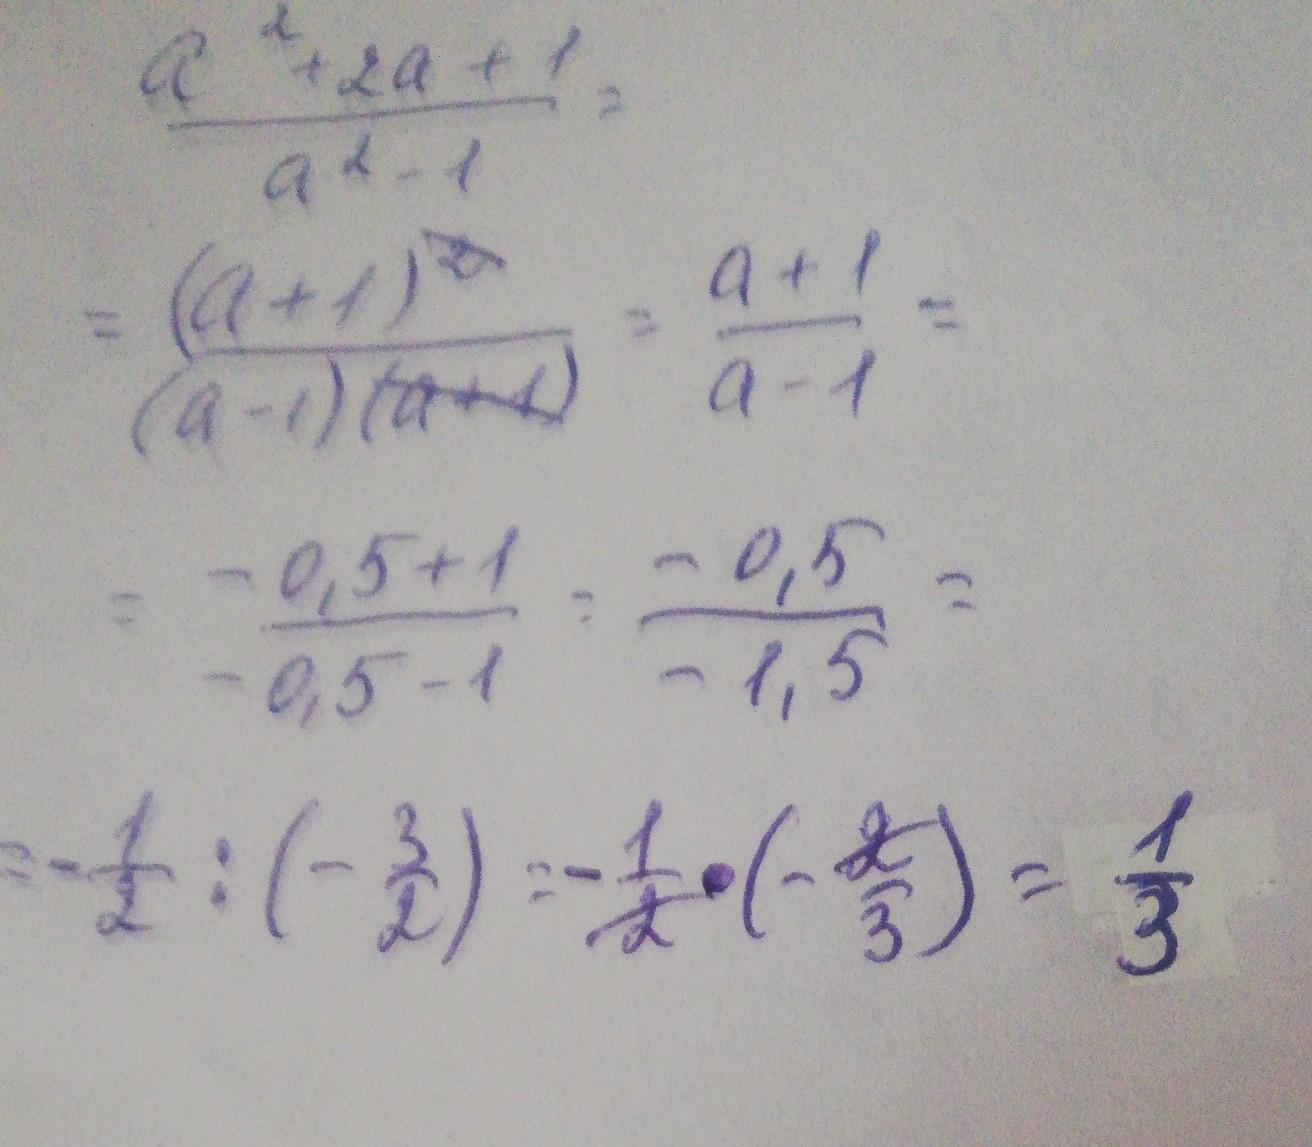 a² + 2a + 1 / a² - 1 =
= (a + 1)² / (a - 1)(a + 1) = a + 1 / a - 1 =
= -0,5 + 1 / -0,5 - 1 = -0,5 / -1,5 =
= -1/2 : (-3/2) = -1/2 • (-2/3) = 1/3